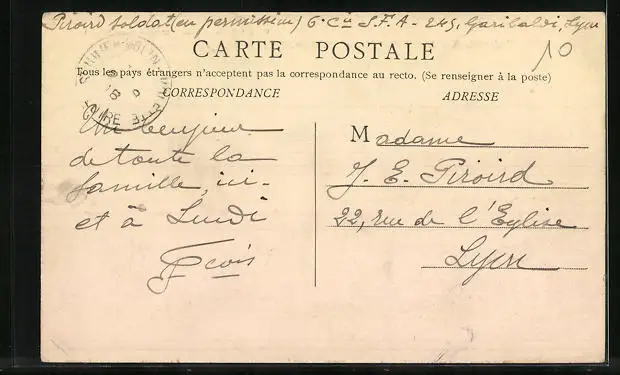 Piroird soldat (en permission) 6e Cie S.F.A - 245, Garibaldi, Lyon
10
CARTE POSTALE
Tous les pays étrangers n'acceptent pas la correspondance au recto. (Se renseigner à la poste)
CORRESPONDANCE
ADRESSE
Un bonjour
de toute la
famille, ici-
et à Lundi
Fcois
Madame
J. E. Piroird
22, rue de l'Eglise
Lyon